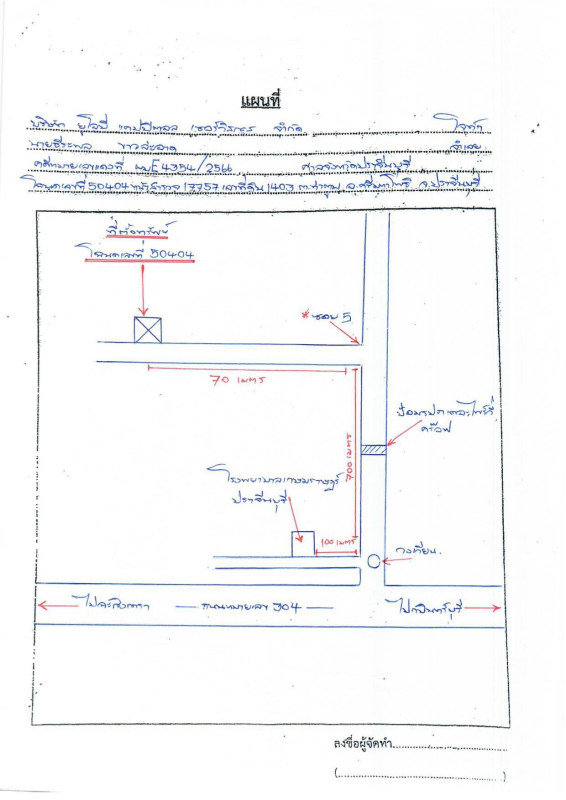 แผนที่
บริษัท ยูโอบี แคปปิตอล เซอร์วิสเซส จำกัด โจทก์
นายธีระพล ขาวสะอาด จำเลย
คดีหมายเลขแดงที่ ผบE4354/2566 ศาลจังหวัดปราจีนบุรี
โฉนดเลขที่ 50404 หน้าสำรวจ 17757 เลขที่ดิน 1403 ต.ท่าตูม อ.ศรีมหาโพธิ จ.ปราจีนบุรี
ที่ตั้งทรัพย์
โฉนดเลขที่ 50404
*ซอย 5
70 เมตร
700 เมตร
โรงพยาบาลเกษมราษฎร์
ปราจีนบุรี
100 เมตร
วงเวียน
ไปฉะเชิงเทรา
ถนนหมายเลข 304
ไปกบินทร์บุรี
ลงชื่อผู้จัดทำ
(                    )